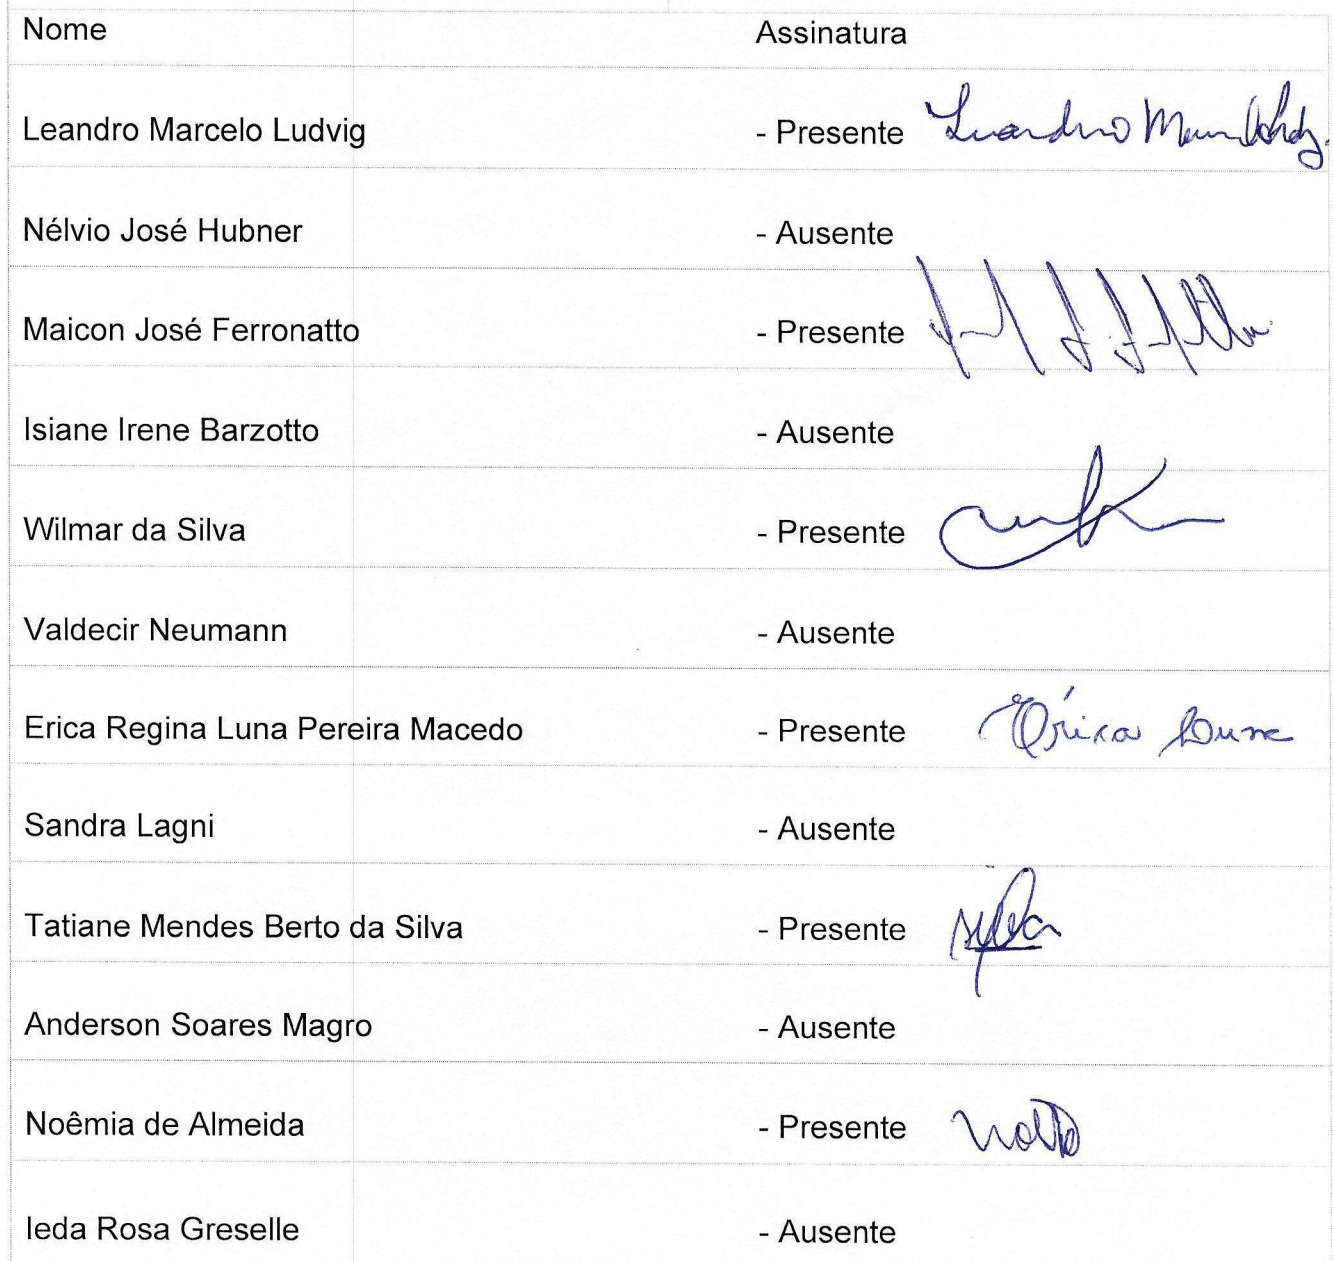 Nome Assinatura
Leandro Marcelo Ludvig - Presente Leandro
Nélvio José Hubner - Ausente
Maicon José Ferronatto - Presente
Isiane Irene Barzotto - Ausente
Wilmar da Silva - Presente
Valdecir Neumann - Ausente
Erica Regina Luna Pereira Macedo - Presente Érica Luna
Sandra Lagni - Ausente
Tatiane Mendes Berto da Silva - Presente
Anderson Soares Magro - Ausente
Noêmia de Almeida - Presente
Ieda Rosa Greselle - Ausente